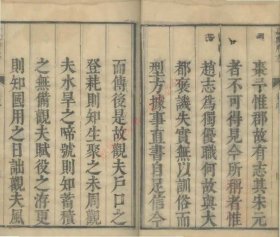 棗于惟郡故有志其宋元
者不可得見今所稱者惟
趙志為獨優職何故與大
都褒譏失實無以訓俗而
型方據事直書自足信今
而傳後是故觀夫戶口之
登耗則知生聚之未周觀
夫水旱之啼號則知蓄積
之無備觀夫賦役之洊更
則知國用之日詘觀夫風